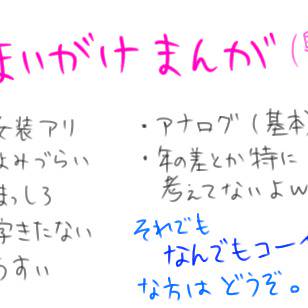 まいがけまんが(
女装アリ
よみづらい
まっしろ
字きたない
うすい
・アナログ(基本)
・年の差とか特に
考えてないよw
それでも
なんでもコーイ
な方はどうぞ。